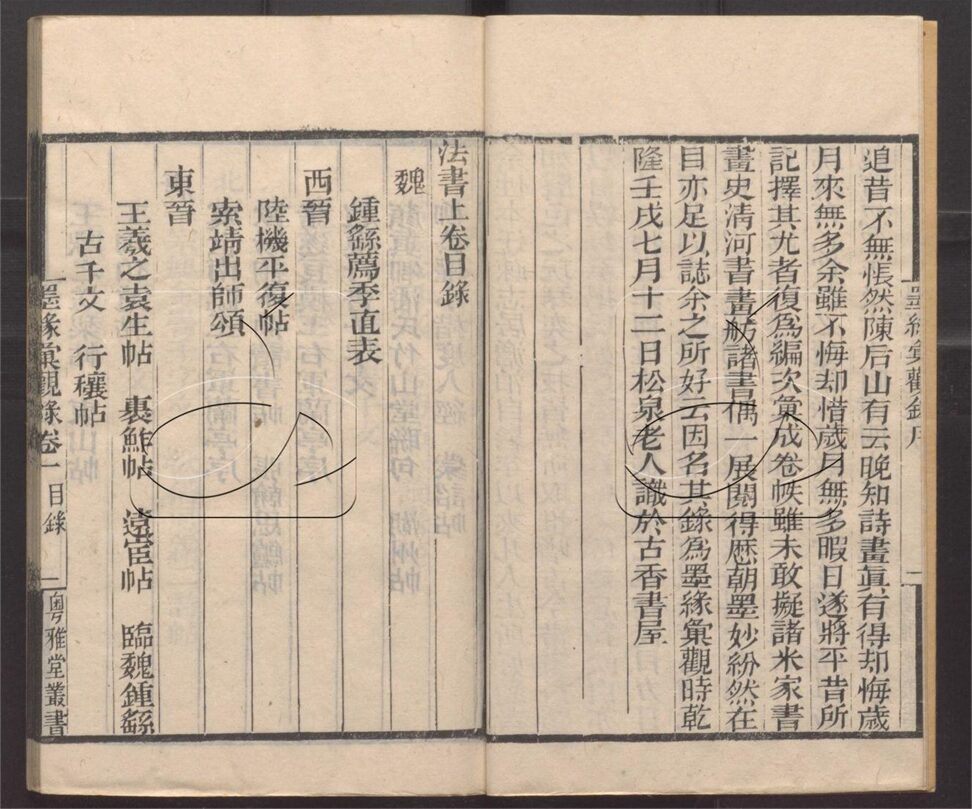 墨緣彙觀錄序
追昔不無悵然陳后山有云晚知詩畫眞有得却悔歲
月來無多余雖不悔却惜歲月無多暇日遂將平昔所
記擇其尤者復爲編次彙成卷帙雖未敢擬諸米家書
畫史淸河書畫舫諸書偶一展閱得歷朝墨妙紛然在
目亦足以誌余之所好云因名其錄爲墨緣彙觀時乾
隆壬戌七月十二日松泉老人識於古香書屋
法書上卷目錄
魏
鍾繇薦季直表
西晉
陸機平復帖
索靖出師頌
東晉
王羲之袁生帖 裹鮓帖 遠宦帖 臨魏鍾繇
古千文 行穰帖
墨緣彙觀錄卷一目錄 一 粵雅堂叢書